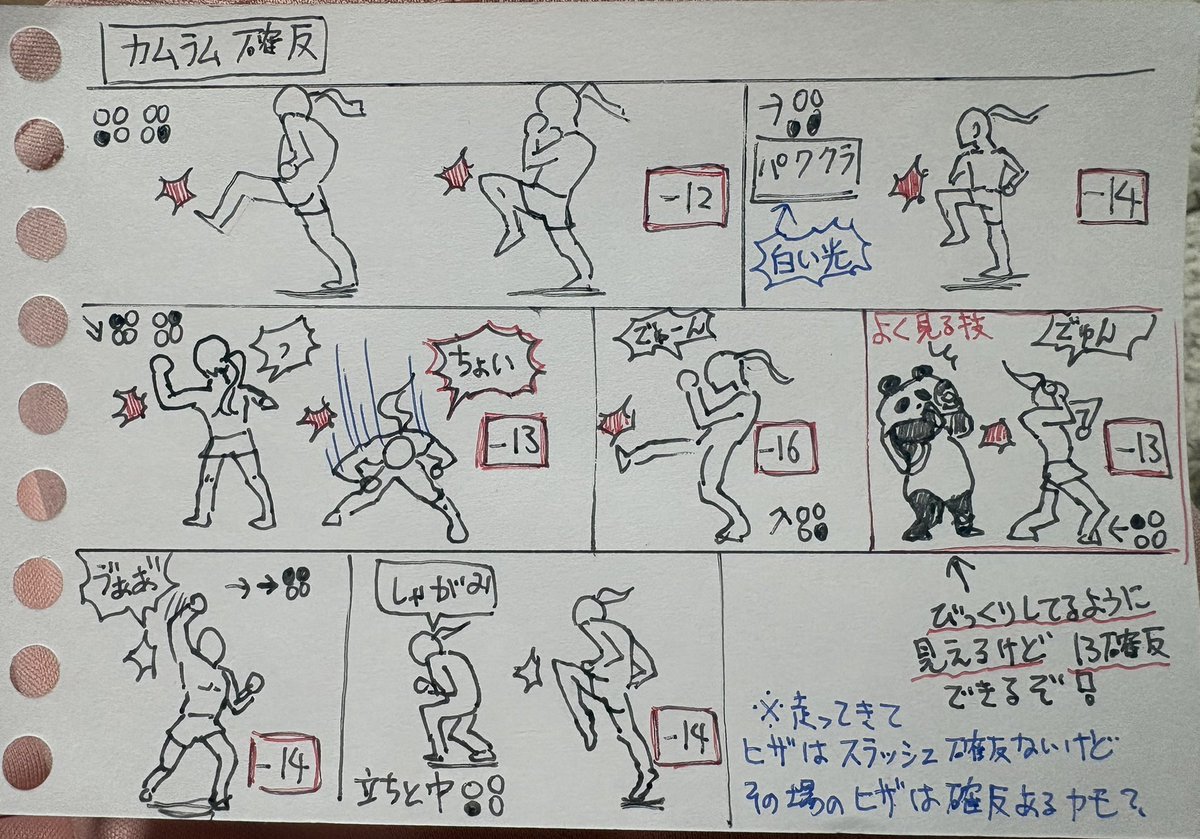 カムラム確反
-12
→
パワクラ
白い光
-14
↘
ちょい
-13
でゅーん
-16
↗
よく見る技
でゅん
-13
←
ヴぁぁぉ
→→
-14
しゃがみ
立ちと中
-14
↑
びっくりしてるように
見えるけど 13確反
できるぞ!
※走ってきて
ヒザはスラッシュ確反ないけど
その場のヒザは確反あるカモ?